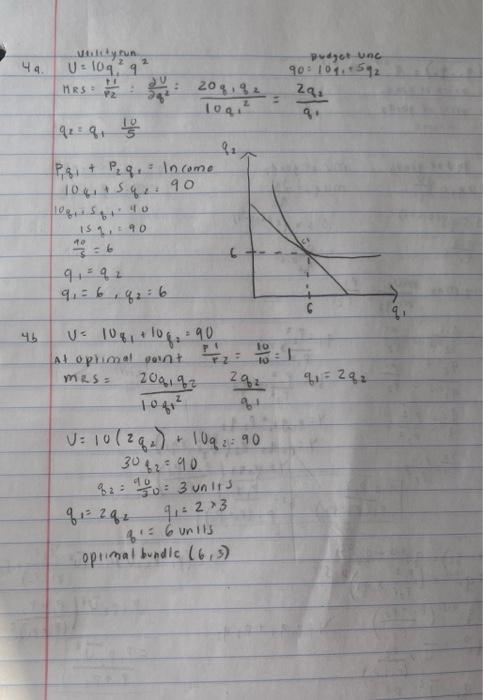 4a. Utility fun Budget line
U = 10q₁² q² 90 = 10q₁ + 5q₂
MRS = P1/P2 : ∂U/∂q² : 20q₁q₂/10q₁² = 2q₂/q₁
q₂ = q₁ 10/5
q₂
P₁q₁ + P₂q₁ = Income
10q₁ + 5q₂ = 90
10q₁ + 5q₁ = 90
15q₁ = 90
90/5 = 6
6
q₁ = q₂
q₁ = 6, q₂ = 6
6
q₁
4b U = 10q₁ + 10q₂ = 90
At optimal point P1/P2 = 10/10 = 1
MRS = 20q₁q₂/10q₁² 2q₂/q₁ q₁ = 2q₂
U = 10(2q₂) + 10q₂ = 90
30q₂ = 90
q₂ = 90/30 = 3 units
q₁ = 2q₂ q₁ = 2×3
q₁ = 6 units
optimal bundle (6,3)